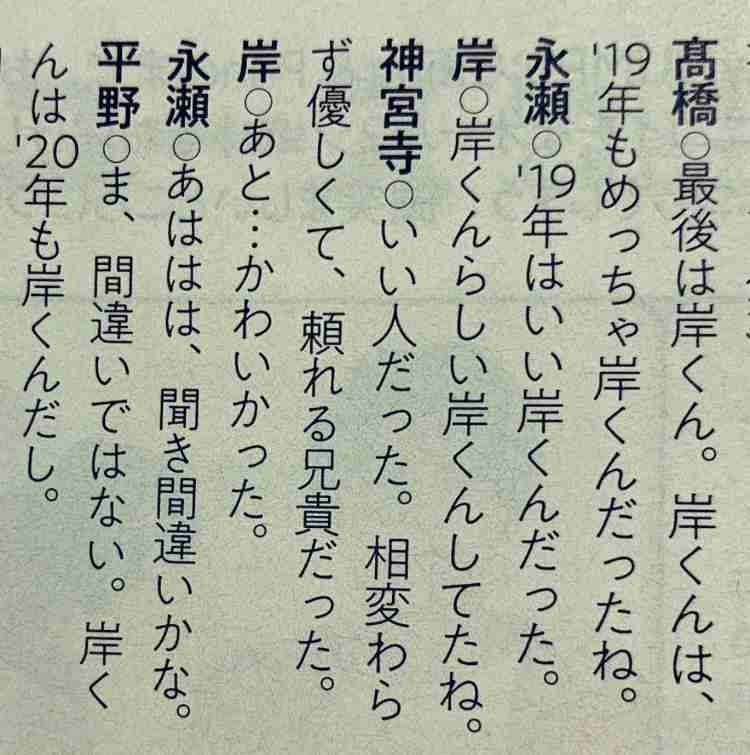 髙橋○最後は岸くん。岸くんは、
'19年もめっちゃ岸くんだったね。
永瀬○'19年はいい岸くんだった。
岸○岸くんらしい岸くんしてたね。
神宮寺○いい人だった。相変わら
ず優しくて、頼れる兄貴だった。
岸○あと…かわいかった。
永瀬○あははは、聞き間違いかな。
平野○ま、間違いではない。岸く
んは'20年も岸くんだし。